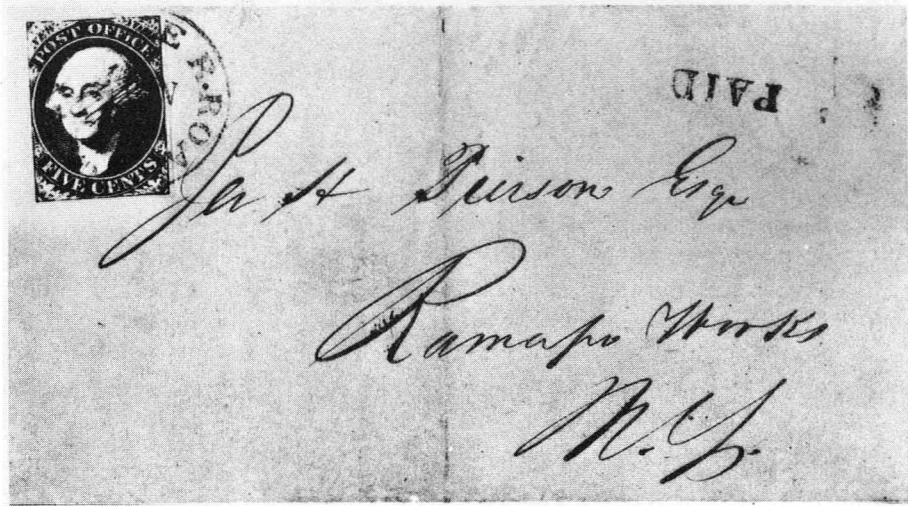 POST OFFICE
FIVE CENTS
E R·ROA
PAID
Jer H Pierson Esqr
Ramapo Works
N.Y.